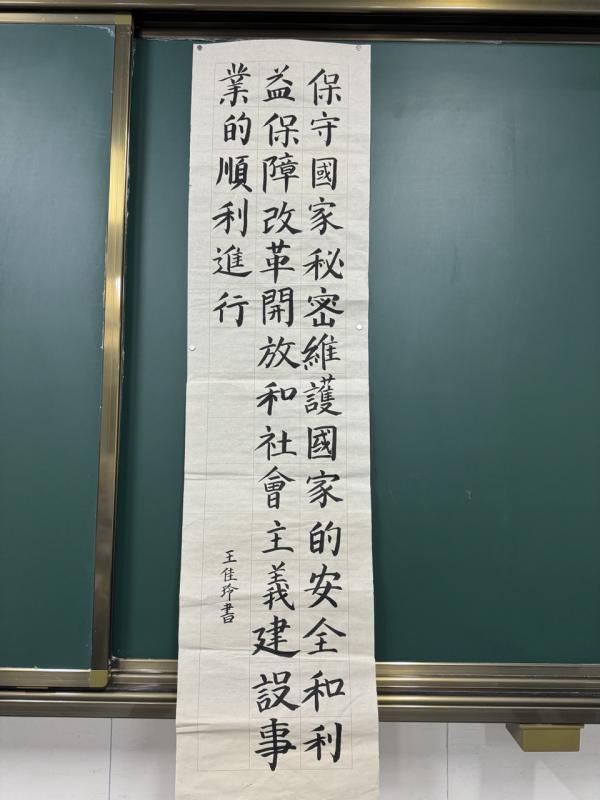 保守國家秘密維護國家的安全和利
益保障改革開放和社會主義建設事
業的順利進行
王佳玲書